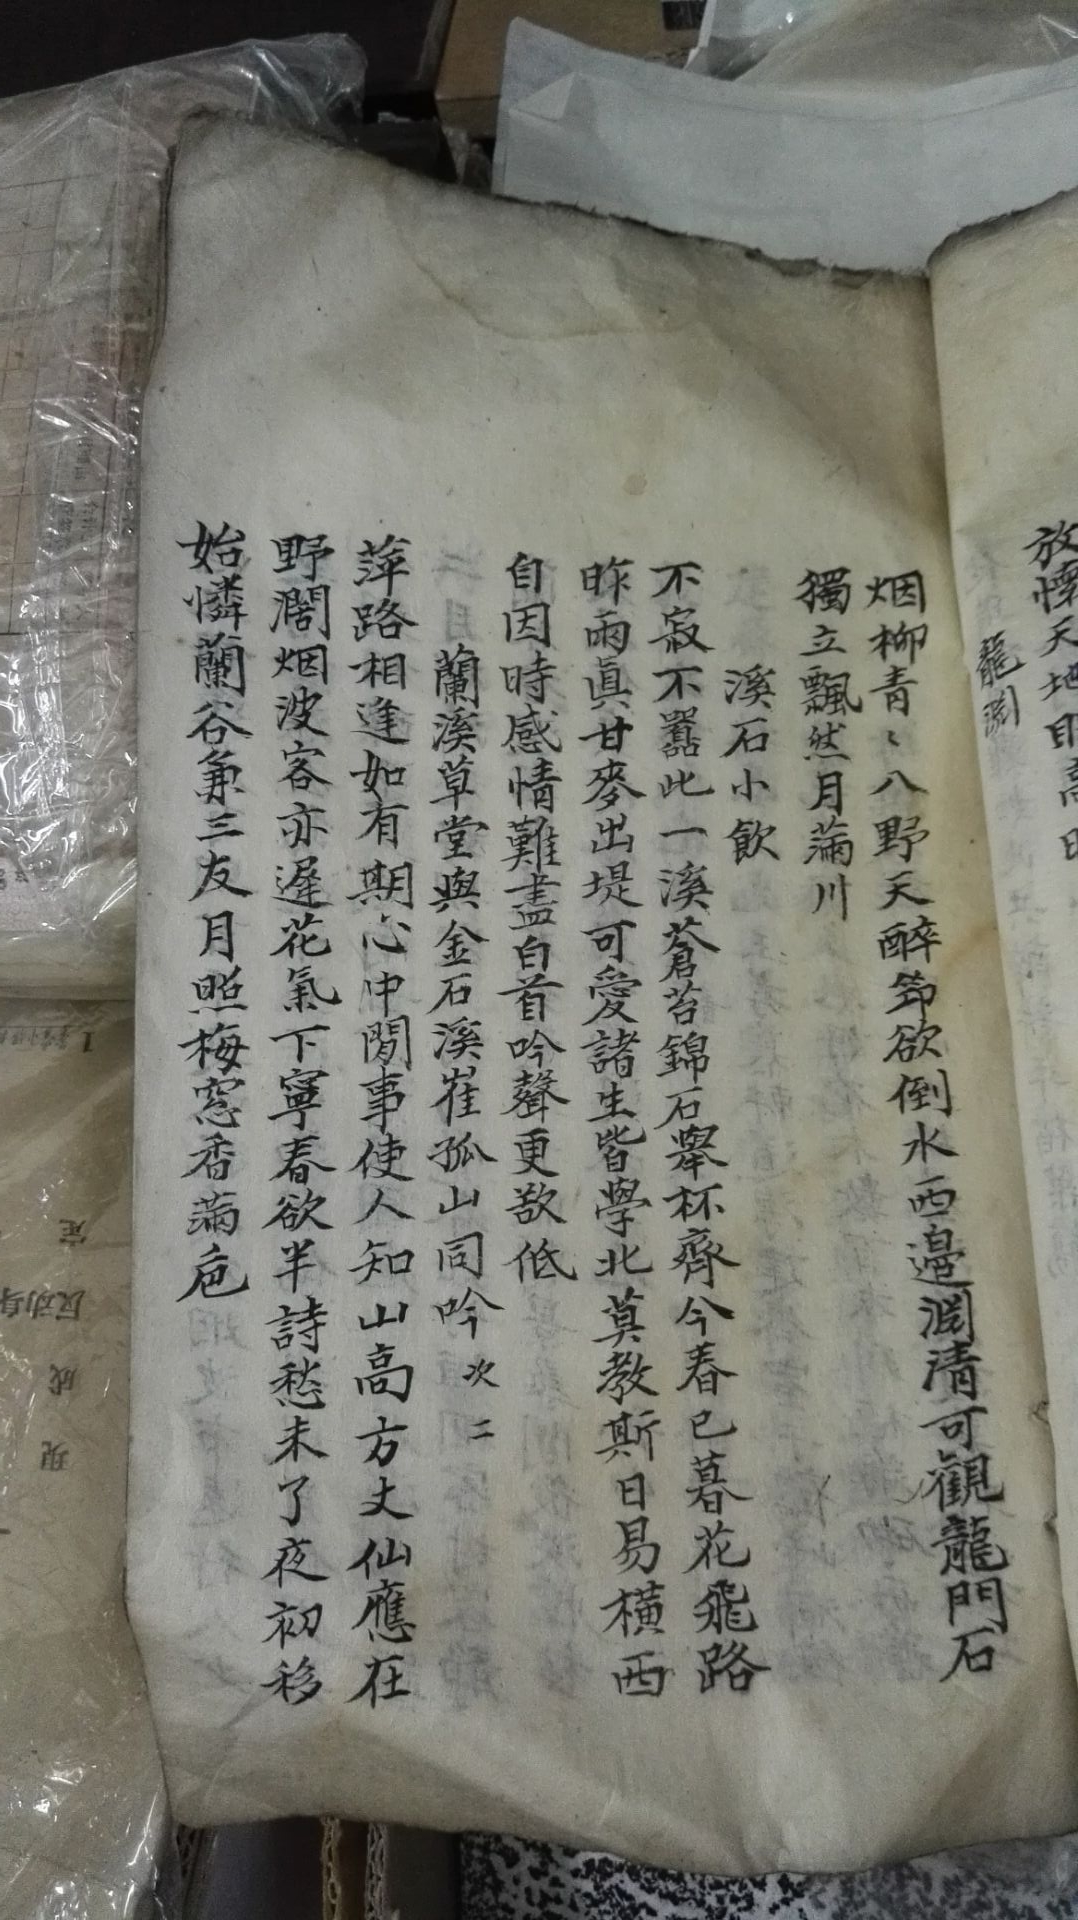 放懷天地
龍淵
烟柳青〻八野天醉筇欲倒水西邉淵清可觀龍門石
獨立飄然月滿川
溪石小飮
不寂不嚣此一溪蒼苔錦石舉杯齊今春已暮花飛路
昨雨眞甘麥出堤可愛諸生皆學北莫教斯日易橫西
自因時感情難盡白首吟聲更敲低
蘭溪草堂與金石溪崔孤山同吟 次二
萍路相逢如有期心中閒事使人知山高方丈仙應在
野濶烟波客亦遲花氣下寧春欲半詩愁未了夜初移
始憐蘭谷兼三友月照梅窓香滿巵